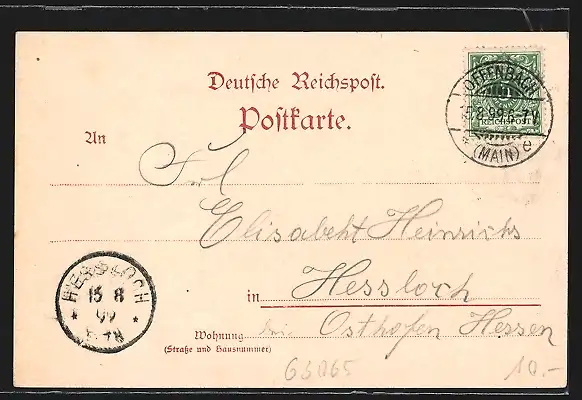 Deutsche Reichspost.
Postkarte.
OFFENBACH
REICHSPOST
(MAIN) e
An
Frl.
Elisabeht Heinrichs
in Hessloch
bei Osthofen Hessen
Wohnung
(Straße und Hausnummer)
HESSLOCH
15 8
99
63065
10.-